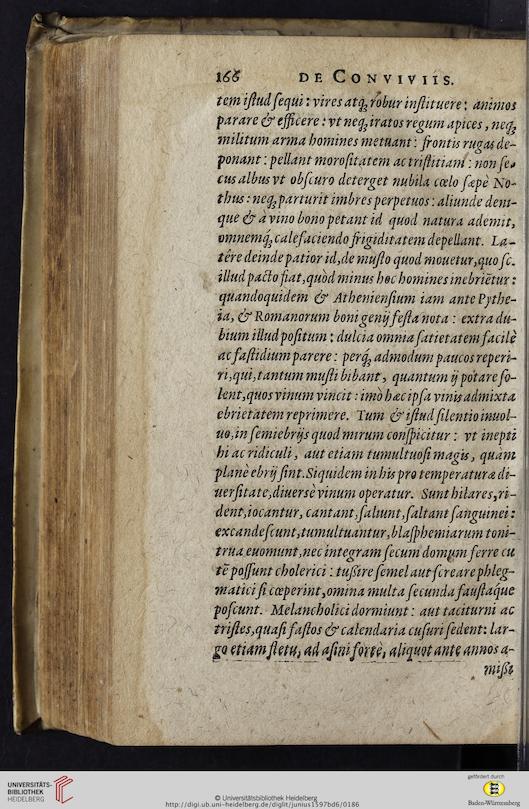 166 DE CONVIVIIS.
tem iſtud ſequi : vires atq́; robur inſtituere : animos
parare & efficere : vt neq; iratos regum apices, neq;
militum arma homines metuant : frontis rugas de-
ponant : pellant moroſitatem ac triſtitiam : non ſe-
cus albus vt obſcuro deterget nubila cœlo ſæpè No-
thus : neq; parturit imbres perpetuos : aliunde deni-
que & à vino bono petant id quod natura ademit,
omnemq́; calefaciendo frigiditatem depellant. La-
têre deinde patior id, de muſto quod mouetur, quo ſc.
illud pacto fiat, quòd minus hoc homines inebriētur :
quandoquidem & Athenienſium iam ante Pythe-
ia, & Romanorum boni genij feſta nota : extra du-
bium illud poſitum : dulcia omnia ſatietatem facilè
ac faſtidium parere : perq́; admodum paucos reperi-
ri, qui, tantum muſti bibant, quantum ij potare ſo-
lent, quos vinum vincit : imò hæc ipſa vinis admixta
ebrietatem reprimere. Tum & iſtud ſilentio inuol-
uo, in ſemiebrijs quod mirum conſpicitur : vt inepti
hi ac ridiculi, aut etiam tumultuoſi magis, quàm
planè ebrij ſint. Siquidem in his pro temperaturæ di-
uerſitate, diuersè vinum operatur. Sunt hilares, ri-
dent, iocantur, cantant, ſaliunt, ſaltant ſanguinei :
excandeſcunt, tumultuantur, blaſphemiarum toni-
trua euomunt, nec integram ſecum domum ferre cu
tē poſſunt cholerici : tußire ſemel aut ſcreare phleg-
matici ſi cœperint, omina multa ſecunda fauſtaque
poſcunt. Melancholici dormiunt : aut taciturni ac
triſtes, quaſi faſtos & calendaria cuſuri ſedent : lar-
go etiam fletu, ad aſini fortè, aliquot ante annos a-
mißi
UNIVERSITÄTS-
BIBLIOTHEK
HEIDELBERG
© Universitätsbibliothek Heidelberg
http://digi.ub.uni-heidelberg.de/diglit/junius1597bd6/0186
gefördert durch
Baden-Württemberg